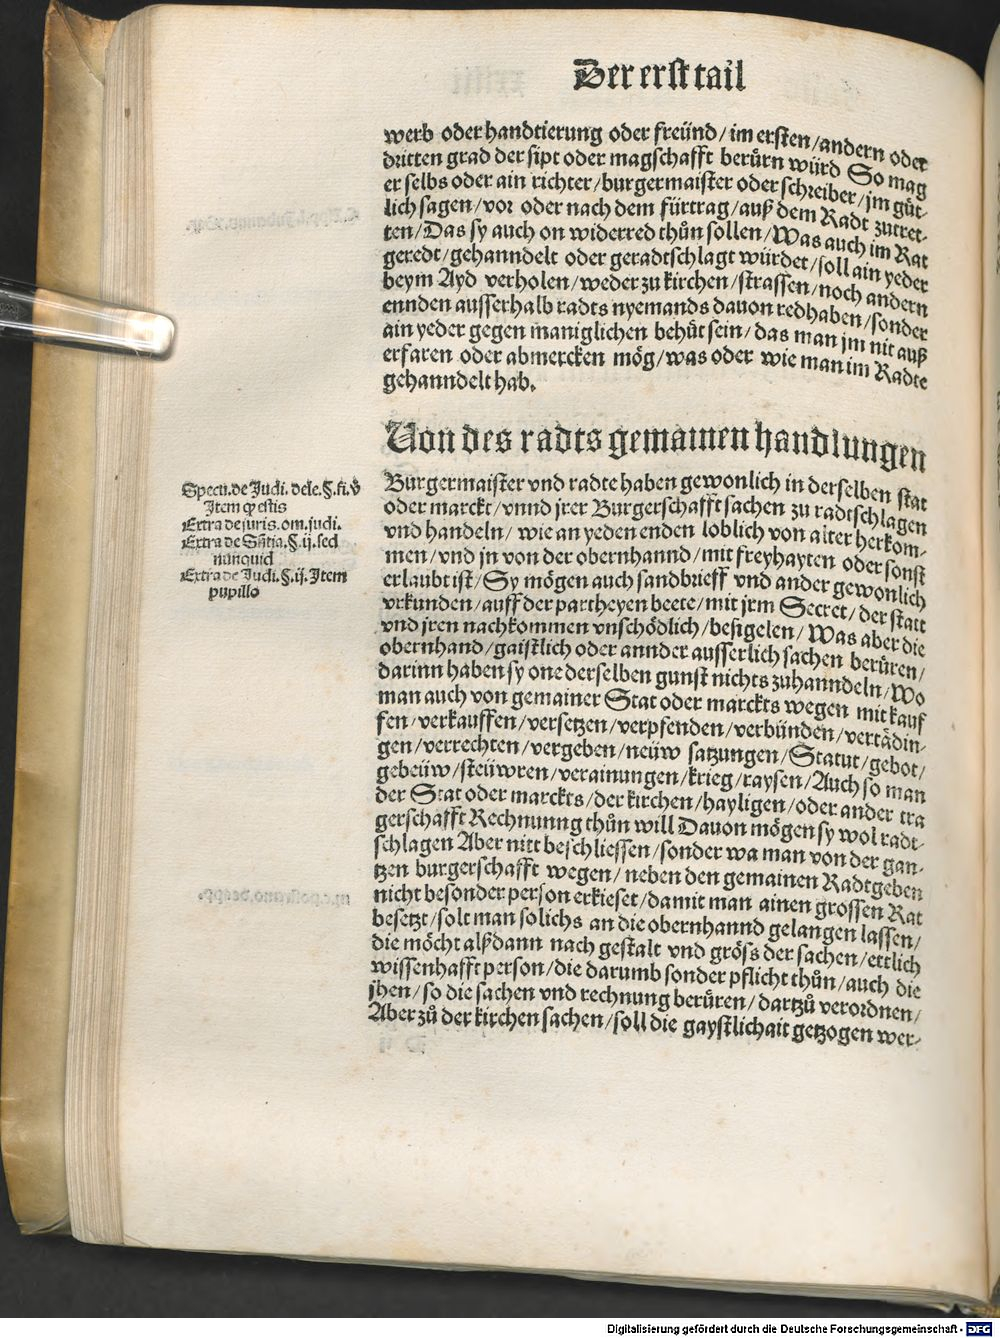 Der erst tail
werb oder handtierung oder freünd / im ersten / andern oder
dritten grad der sipt oder magschafft berůrn würd So mag
er selbs oder ain richter / burgermaister oder schreiber / jm gůt-
lich sagen / vor oder nach dem fürtrag / auß dem Radt zutret-
ten / Das sy auch on widerred thůn sollen / Was auch im Rat
geredt / gehanndelt oder geradtschlagt würdet / soll ain yeder
beym Ayd verholen / weder zu kirchen / strassen / noch andern
ennden ausserhalb radts nyemands dauon redhaben / sonder
ain yeder gegen maniglichen behůt sein / das man jm nit auß
erfaren oder abmercken mög / was oder wie man im Radte
gehanndelt hab.
Von des radts gemainen handlungen
Burgermaister vnd radte haben gewonlich in derselben stat
oder marckt / vnnd jrer Burgerschafft sachen zu radtschlagen
vnd handeln / wie an yeden enden loblich von alter herkom-
men / vnd jn von der obernhannd / mit freyhayten oder sonst
erlaubt ist / Sy mögen auch sandbrieff vnd ander gewonlich
vrkunden / auff der partheyen beete / mit jrm Secret / der statt
vnd jren nachkommen vnschödlich / besigelen / Was aber die
obernhand / gaistlich oder annder ausserlich sachen berůren /
darinn haben sy one derselben gunst nichts zuhanndeln / Wo
man auch von gemainer Stat oder marckts wegen mit kauf
fen / verkauffen / versetzen / verpfenden / verbünden / vertådin-
gen / verrechten / vergeben / neüw satzungen / Statut / gebot /
gebeüw / steüwren / verainungen / krieg / raysen / Auch so man
der Stat oder marckts / der kirchen / hayligen / oder ander tra
gerschafft Rechnunng thůn will Dauon mögen sy wol radt-
schlagen Aber nitt beschliessen / sonder wa man von der gan-
tzen burgerschafft wegen / neben den gemainen Radtgeben
nicht besonder person erkieset / damit man ainen grossen Rat
besetzt / solt man solichs an die obernhannd gelangen lassen /
die möcht alßdann nach gestalt vnd gröss der sachen / ettlich
wissenhafft person / die darumb sonder pflicht thůn / auch die
jhen / so die sachen vnd rechnung berüren / dartzů verordnen /
Aber zů der kirchen sachen / soll die gaystlichait getzogen wer-
Specu. de Judi. dele. §. fi. v̊
Item q̃ estis
Extra de juris. om. judi.
Extra de Sñtia. §. ij. sed
nunquid
Extra de Judi. §. ij. Item
pupillo
Digitalisierung gefördert durch die Deutsche Forschungsgemeinschaft - DFG